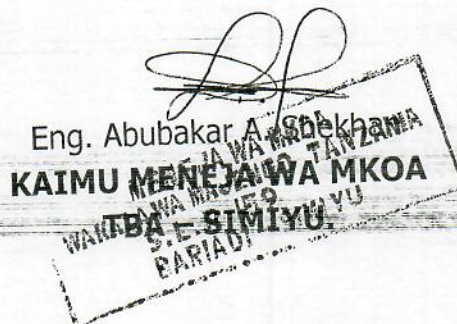 Eng. Abubakar A.
KAIMU MENEJA WA MKOA
TBA – SIMIYU.
MENEJA WA MKOA
WAKALA WA MAJENGO TANZANIA
BARIADI